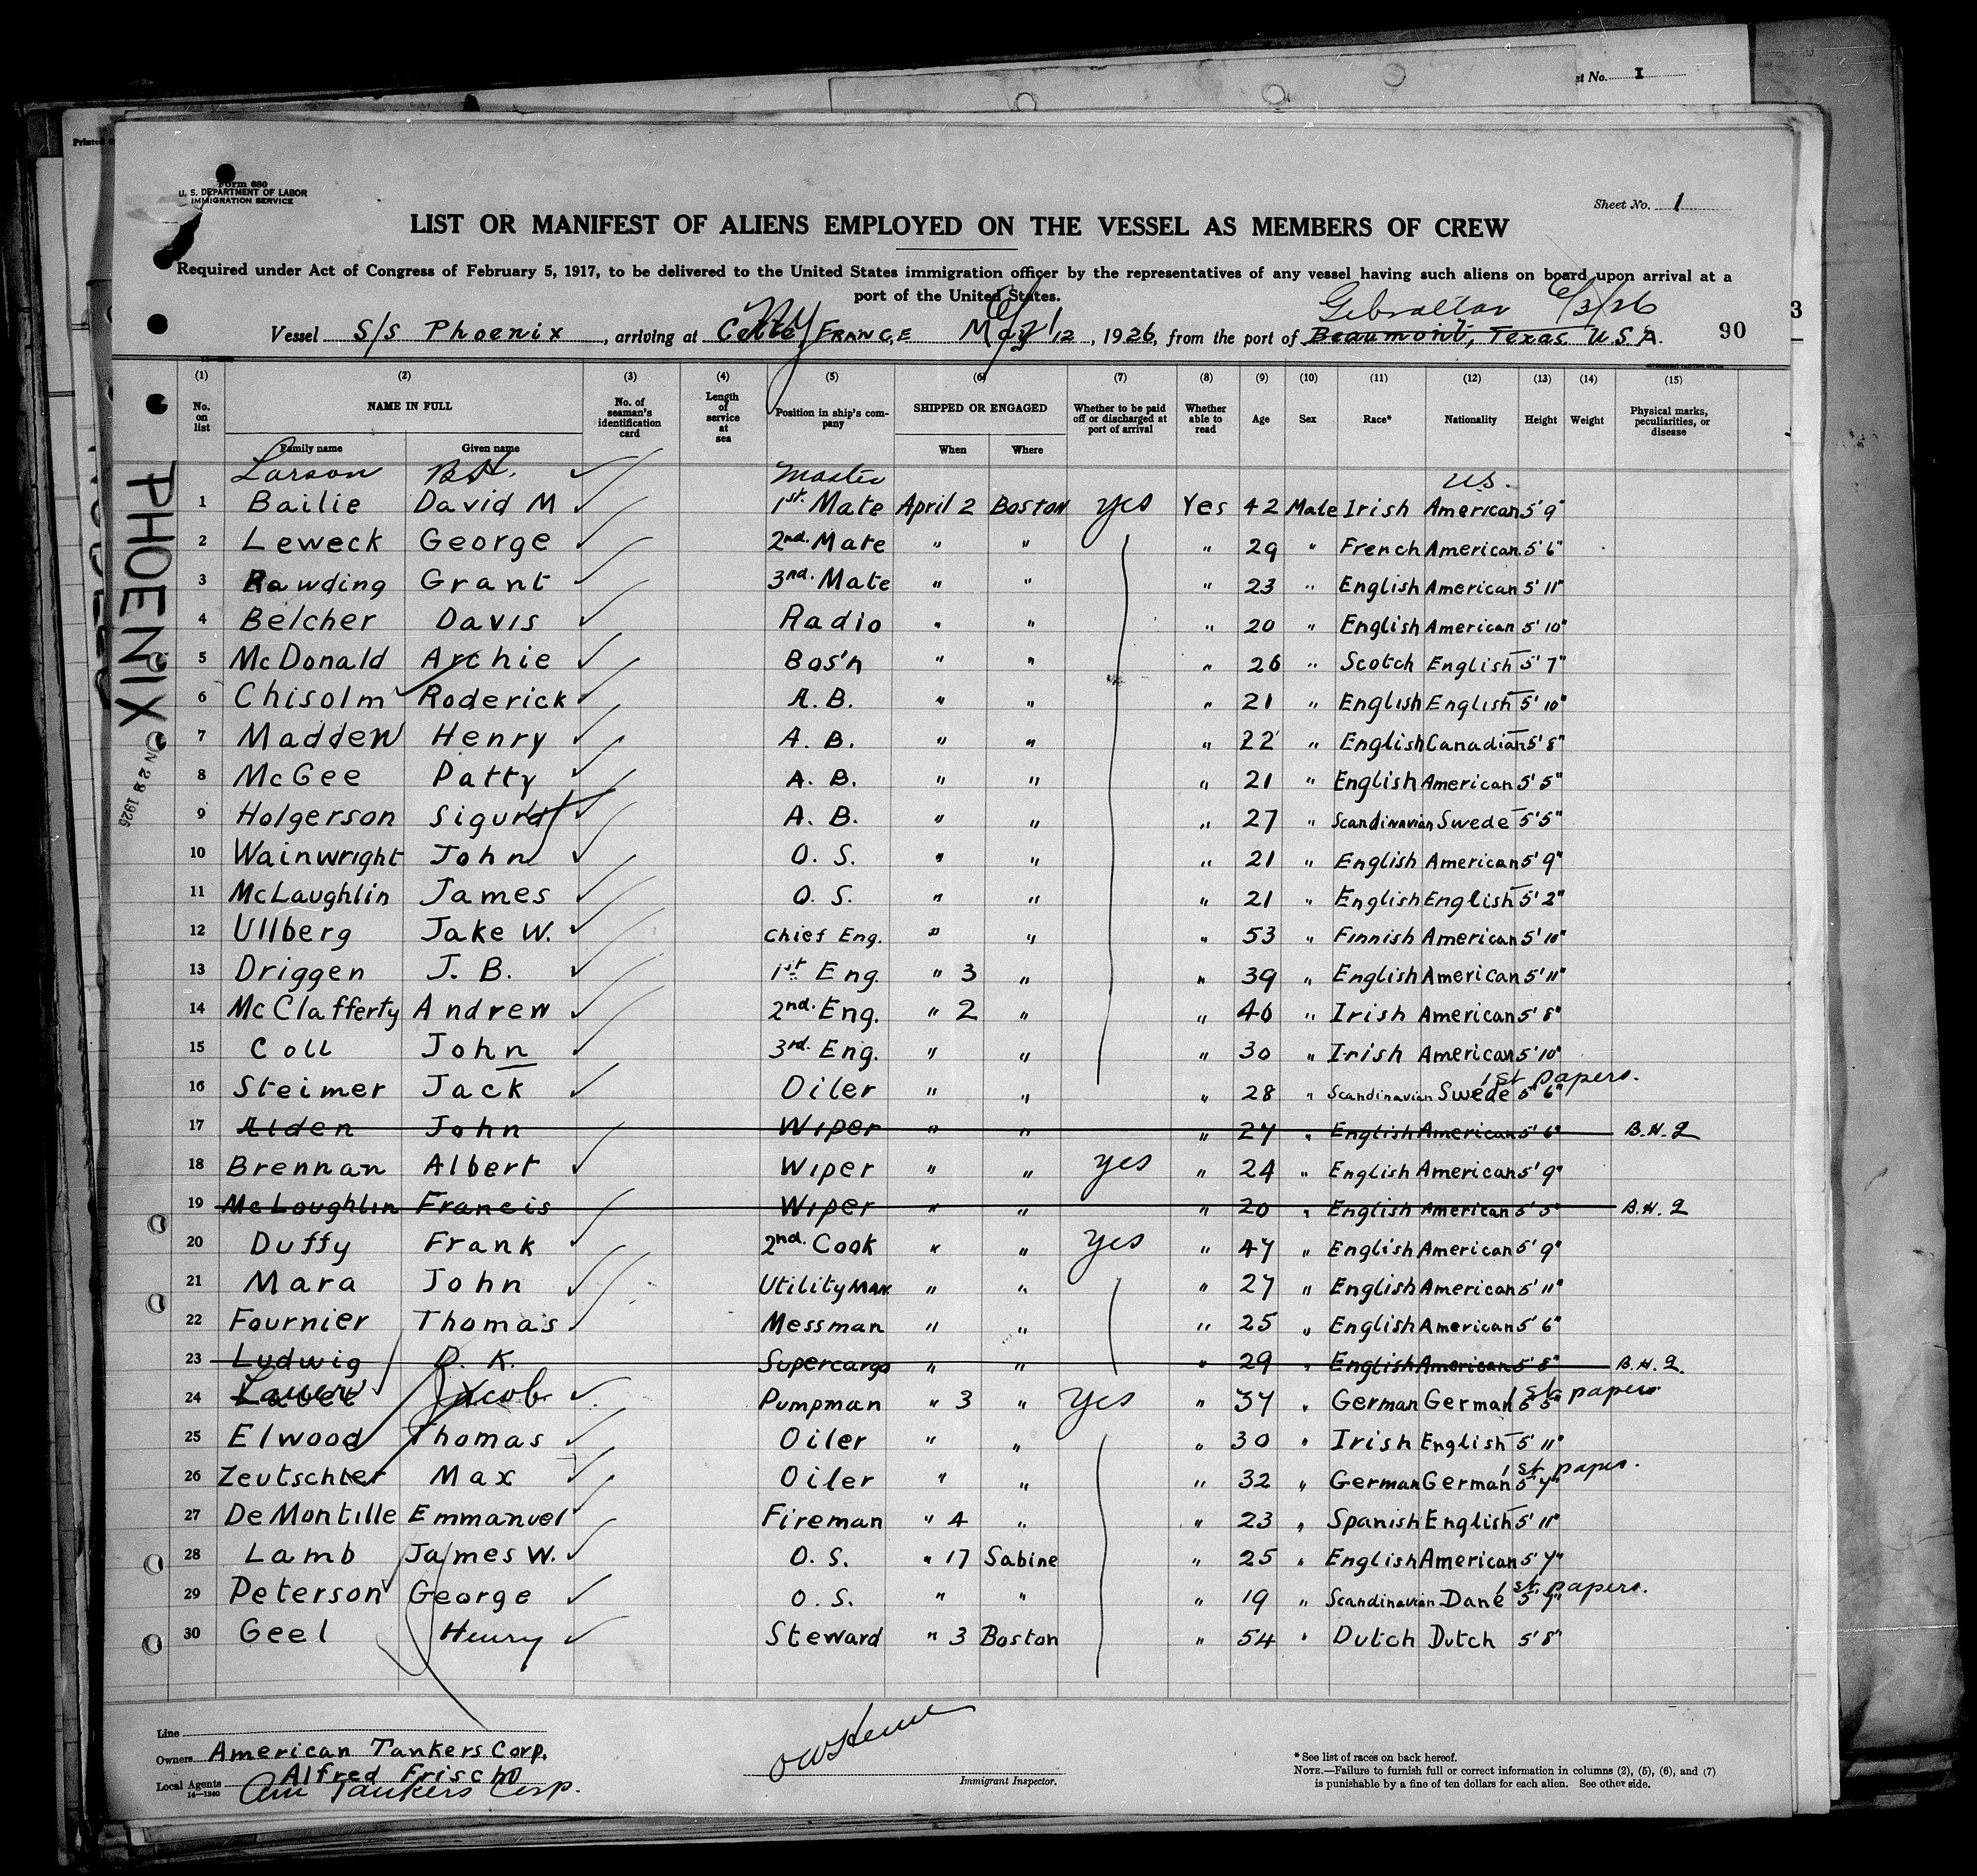 t No. I
Printed
Form 680
U. S. DEPARTMENT OF LABOR
IMMIGRATION SERVICE
Sheet No. 1
LIST OR MANIFEST OF ALIENS EMPLOYED ON THE VESSEL AS MEMBERS OF CREW
Required under Act of Congress of February 5, 1917, to be delivered to the United States immigration officer by the representatives of any vessel having such aliens on board upon arrival at a
port of the United States.
NY Gibraltar 6/3/26
Vessel S/S Phoenix, arriving at Cette, FRANCE May 12, 1926, from the port of Beaumont, Texas U.S.A. 90
3
(1) (2) (3) (4) (5) (6) (7) (8) (9) (10) (11) (12) (13) (14) (15)
No. on list NAME IN FULL No. of seaman's identification card Length of service at sea Position in ship's company SHIPPED OR ENGAGED Whether to be paid off or discharged at port of arrival Whether able to read Age Sex Race* Nationality Height Weight Physical marks, peculiarities, or disease
Family name Given name When Where
Larson B.H. Master U.S.
1 Bailie David M 1st. Mate April 2 Boston yes Yes 42 Male Irish American 5'9"
2 Leweck George 2nd. Mate " " " 29 " French American 5'6"
3 Rawding Grant 3nd. Mate " " " 23 " English American 5'11"
4 Belcher Davis Radio " " " 20 " English American 5'10"
5 McDonald Archie Bos'n " " " 26 " Scotch English 5'7"
6 Chisolm Roderick A.B. " " " 21 " English English 5'10"
7 Madden Henry A.B. " " " 22 " English Canadian 5'8"
8 McGee Patty A.B. " " " 21 " English American 5'5"
9 Holgerson Sigurd A.B. " " " 27 " Scandinavian Swede 5'5"
10 Wainwright John O.S. " " " 21 " English American 5'9"
11 McLaughlin James O.S. " " " 21 " English English 5'2"
12 Ullberg Jake W. Chief Eng. " " " 53 " Finnish American 5'10"
13 Driggen J. B. 1st Eng. " 3 " " 39 " English American 5'11"
14 McClafferty Andrew 2nd. Eng. " 2 " " 46 " Irish American 5'8"
15 Coll John 3rd. Eng. " " " 30 " Irish American 5'10"
16 Steimer Jack Oiler " " " 28 " Scandinavian Swede 5'6" 1st papers.
17 Alden John Wiper " " " 27 " English American 5'6" B.H.2
18 Brennan Albert Wiper " " yes " 24 " English American 5'9"
19 McLoughlin Francis Wiper " " " 20 " English American 5'5" B.H.2
20 Duffy Frank 2nd. Cook " " yes " 47 " English American 5'9"
21 Mara John Utility MAN. " " " 27 " English American 5'11"
22 Fournier Thomas Messman " " " 25 " English American 5'6"
23 Ludwig D. K. Supercargo " " " 29 " English American 5'8" B.H.2.
24 Lauer Jacob Pumpman " 3 " yes " 37 " German German 5'5" 1st papers
25 Elwood Thomas Oiler " " " 30 " Irish English 5'11"
26 Zeutschler Max Oiler " " " 32 " German German 5'7" 1st paper.
27 De Montille Emmanuel Fireman " 4 " " 23 " Spanish English 5'11"
28 Lamb James W. O.S. " 17 Sabine " 25 " English American 5'7"
29 Peterson George O.S. " " " 19 " Scandinavian Dane 5'7" 1st papers.
30 Geel Henry Steward " 3 Boston " 54 " Dutch Dutch 5'8"
PHOENIX
JUN 28 1926
Line
Owners American Tankers Corp.
Local Agents Alfred Frisch
14—1240 Am Tankers Corp.
Immigrant Inspector.
* See list of races on back hereof.
NOTE.—Failure to furnish full or correct information in columns (2), (5), (6), and (7)
is punishable by a fine of ten dollars for each alien. See other side.